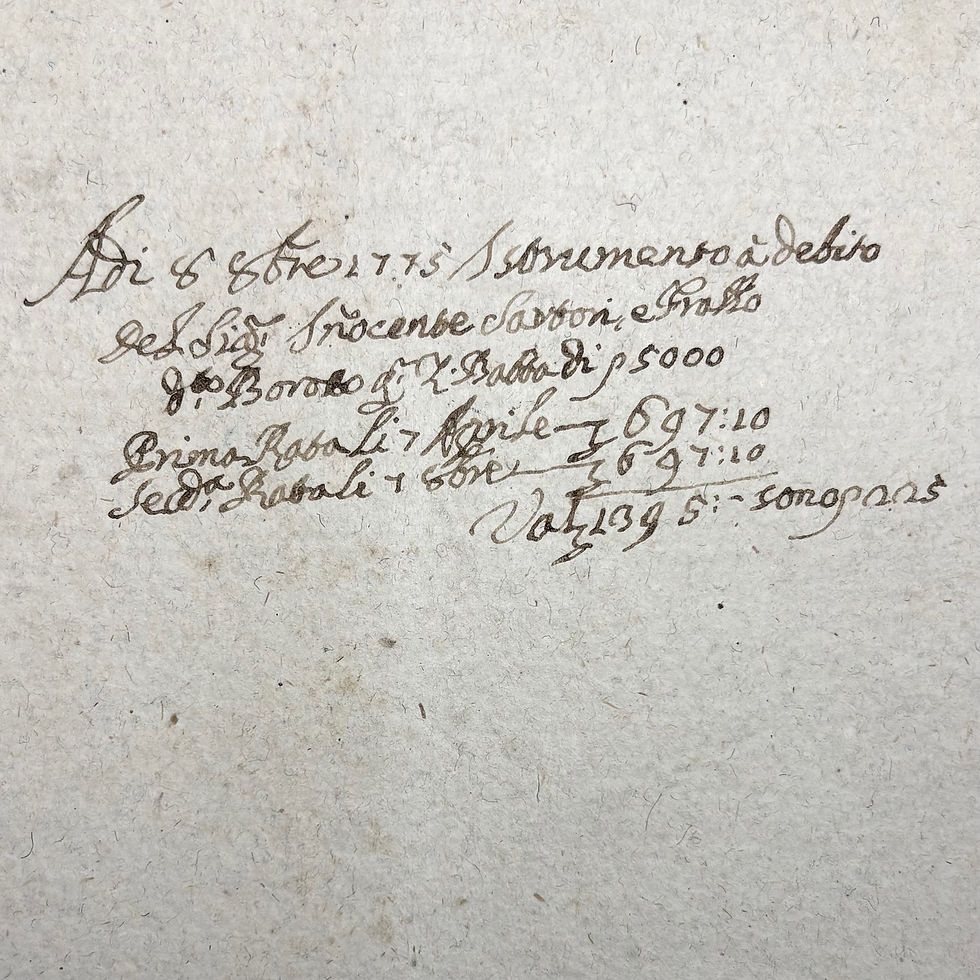 Adi 8 8bre 1775 Istrumento à debito
del Sigr: Iñocente Sartori, e Fratto
dto: Boroto qm: Z: Batta di p 5000
Prima Rata li 7 Aprile — L 697:10
Secda: Rata li 7 8bre — L 697:10
Val L 1395:- sono p 225